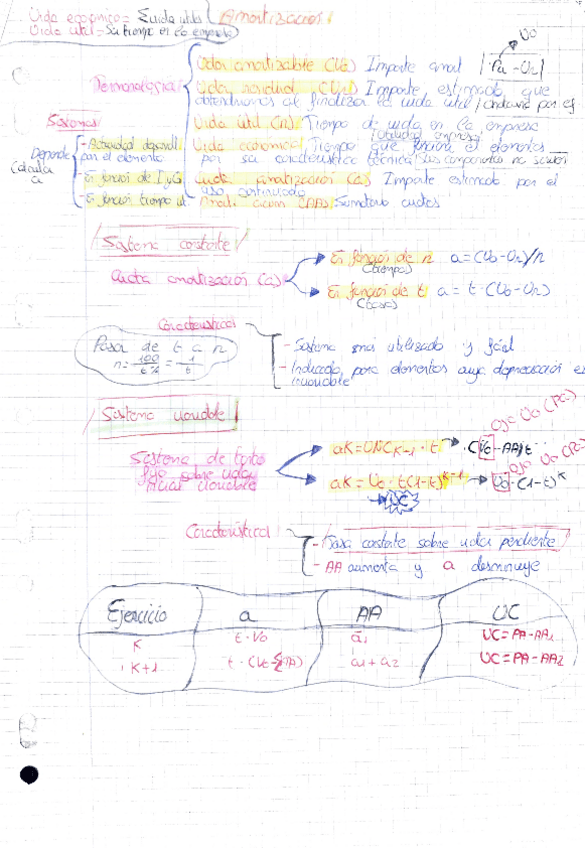 Vida económica = Σ vida útiles
Vida útil = Su tiempo en la empresa
Amortización
Vo
Terminología
Valor amortizable (Va) Importe anual |Pa - Vr|
Valor residual (Vr) Importe estimado que
obtendríamos al finalizar la vida útil
Vida útil (n) Tiempo de vida en la empresa
Vida económica Tiempo que funciona el elemento
por su característica técnica
Cuota amortización (a) Importe estimado por el
uso continuado
Amort. acum (AA) Sumatorio cuotas
Sistemas
Depende
- Actividad
por el elemento
- En función de
- En función tiempo
Sistema constante
Cuota amortización (a)
En función de n a = (Vo-Vr)/n
En función de t a = t · (Vo-Vr)
Características
- Sistema más utilizado y fácil
- Indicado para elementos cuya depreciación es
invariable
Pasar de t a n
n = 100/t% = 1/t
Sistema variable
Sistema de tanto
fijo sobre valor
inicial variable
aK = VNC K-1 · t
(Vo - AA)t
Ojo Vo (Pa)
aK = Vo · t(1-t)^K-1
Vo · (1-t)^K
Ojo Vo (Pa)
VC
Características
- Tasa constante sobre valor pendiente
- AA aumenta y a disminuye
Ejercicio a AA VC
K t · Vo a1 VC = PA - AA1
K+1 a1 + a2 VC = PA - AA2